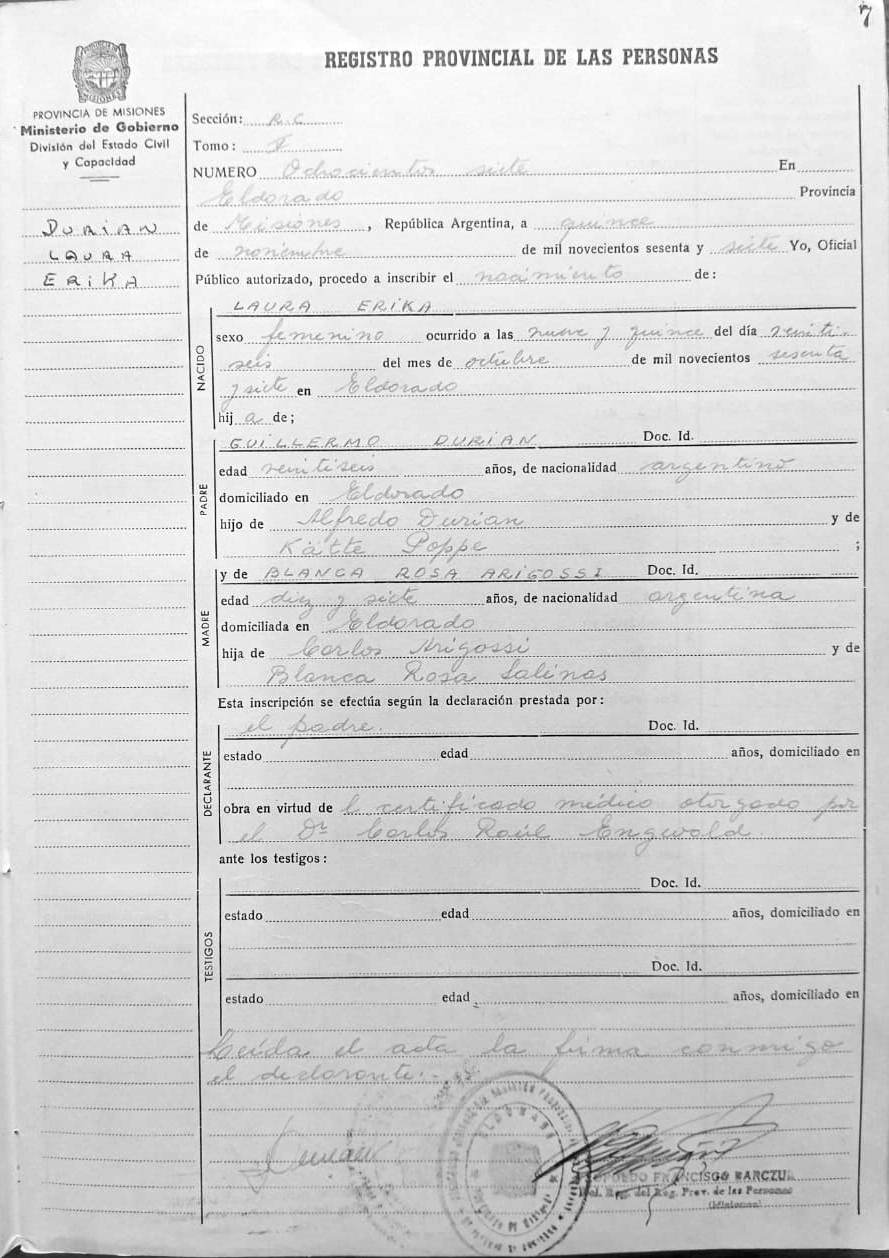 7
REGISTRO PROVINCIAL DE LAS PERSONAS
PROVINCIA DE MISIONES
Ministerio de Gobierno
División del Estado Civil
y Capacidad
DURIAN
LAURA
ERIKA
Sección: R.C
Tomo: I
NUMERO Ochocientos siete En
Eldorado Provincia
de Misiones, República Argentina, a quince
de noviembre de mil novecientos sesenta y siete Yo, Oficial
Público autorizado, procedo a inscribir el nacimiento de:
NACIDO
LAURA ERIKA
sexo femenino ocurrido a las nueve y quince del día veinti-
seis del mes de octubre de mil novecientos sesenta
y siete en Eldorado
hij a de;
PADRE
GUILLERMO DURIAN Doc. Id.
edad veintiseis años, de nacionalidad argentino
domiciliado en Eldorado
hijo de Alfredo Durian y de
Kätte Poppe ;
MADRE
y de BLANCA ROSA ARIGOSSI Doc. Id.
edad diez y siete años, de nacionalidad argentina
domiciliada en Eldorado
hija de Carlos Arigossi y de
Blanca Rosa Salinas
Esta inscripción se efectúa según la declaración prestada por:
DECLARANTE
el padre. Doc. Id.
estado edad años, domiciliado en
obra en virtud de l certificado médico otorgado por
el Dr Carlos Raúl Engwald
ante los testigos:
TESTIGOS
Doc. Id.
estado edad años, domiciliado en
Doc. Id.
estado edad años, domiciliado en
Leída el acta la firma conmigo
el declarante.-
ELDORADO
FRANCISCO
Del. Reg. del Reg. Prov. de las Personas
(Misiones)